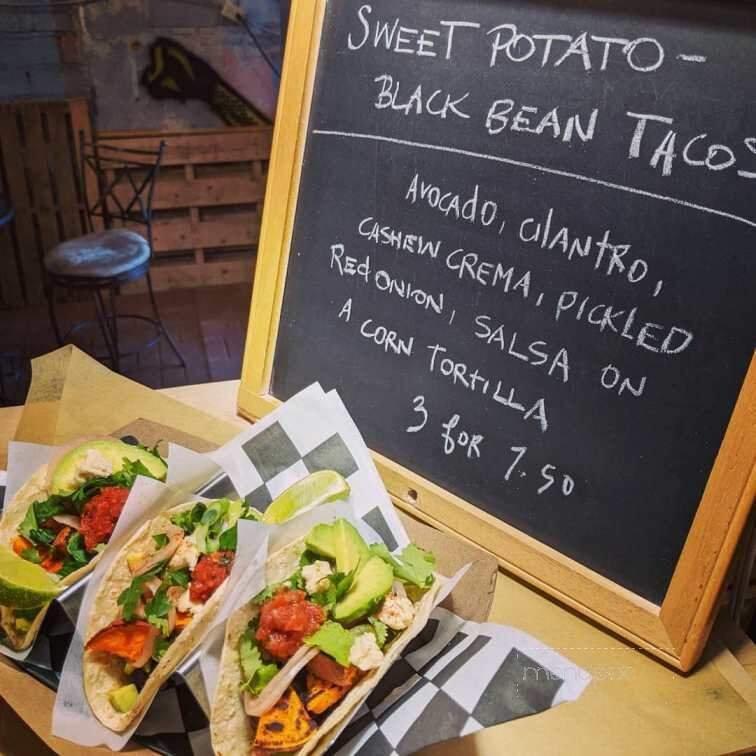 SWEET POTATO -
BLACK BEAN TACOS
AVOCADO, CILANTRO,
CASHEW CREMA, PICKLED
RED ONION, SALSA ON
A CORN TORTILLA
3 for 7.50